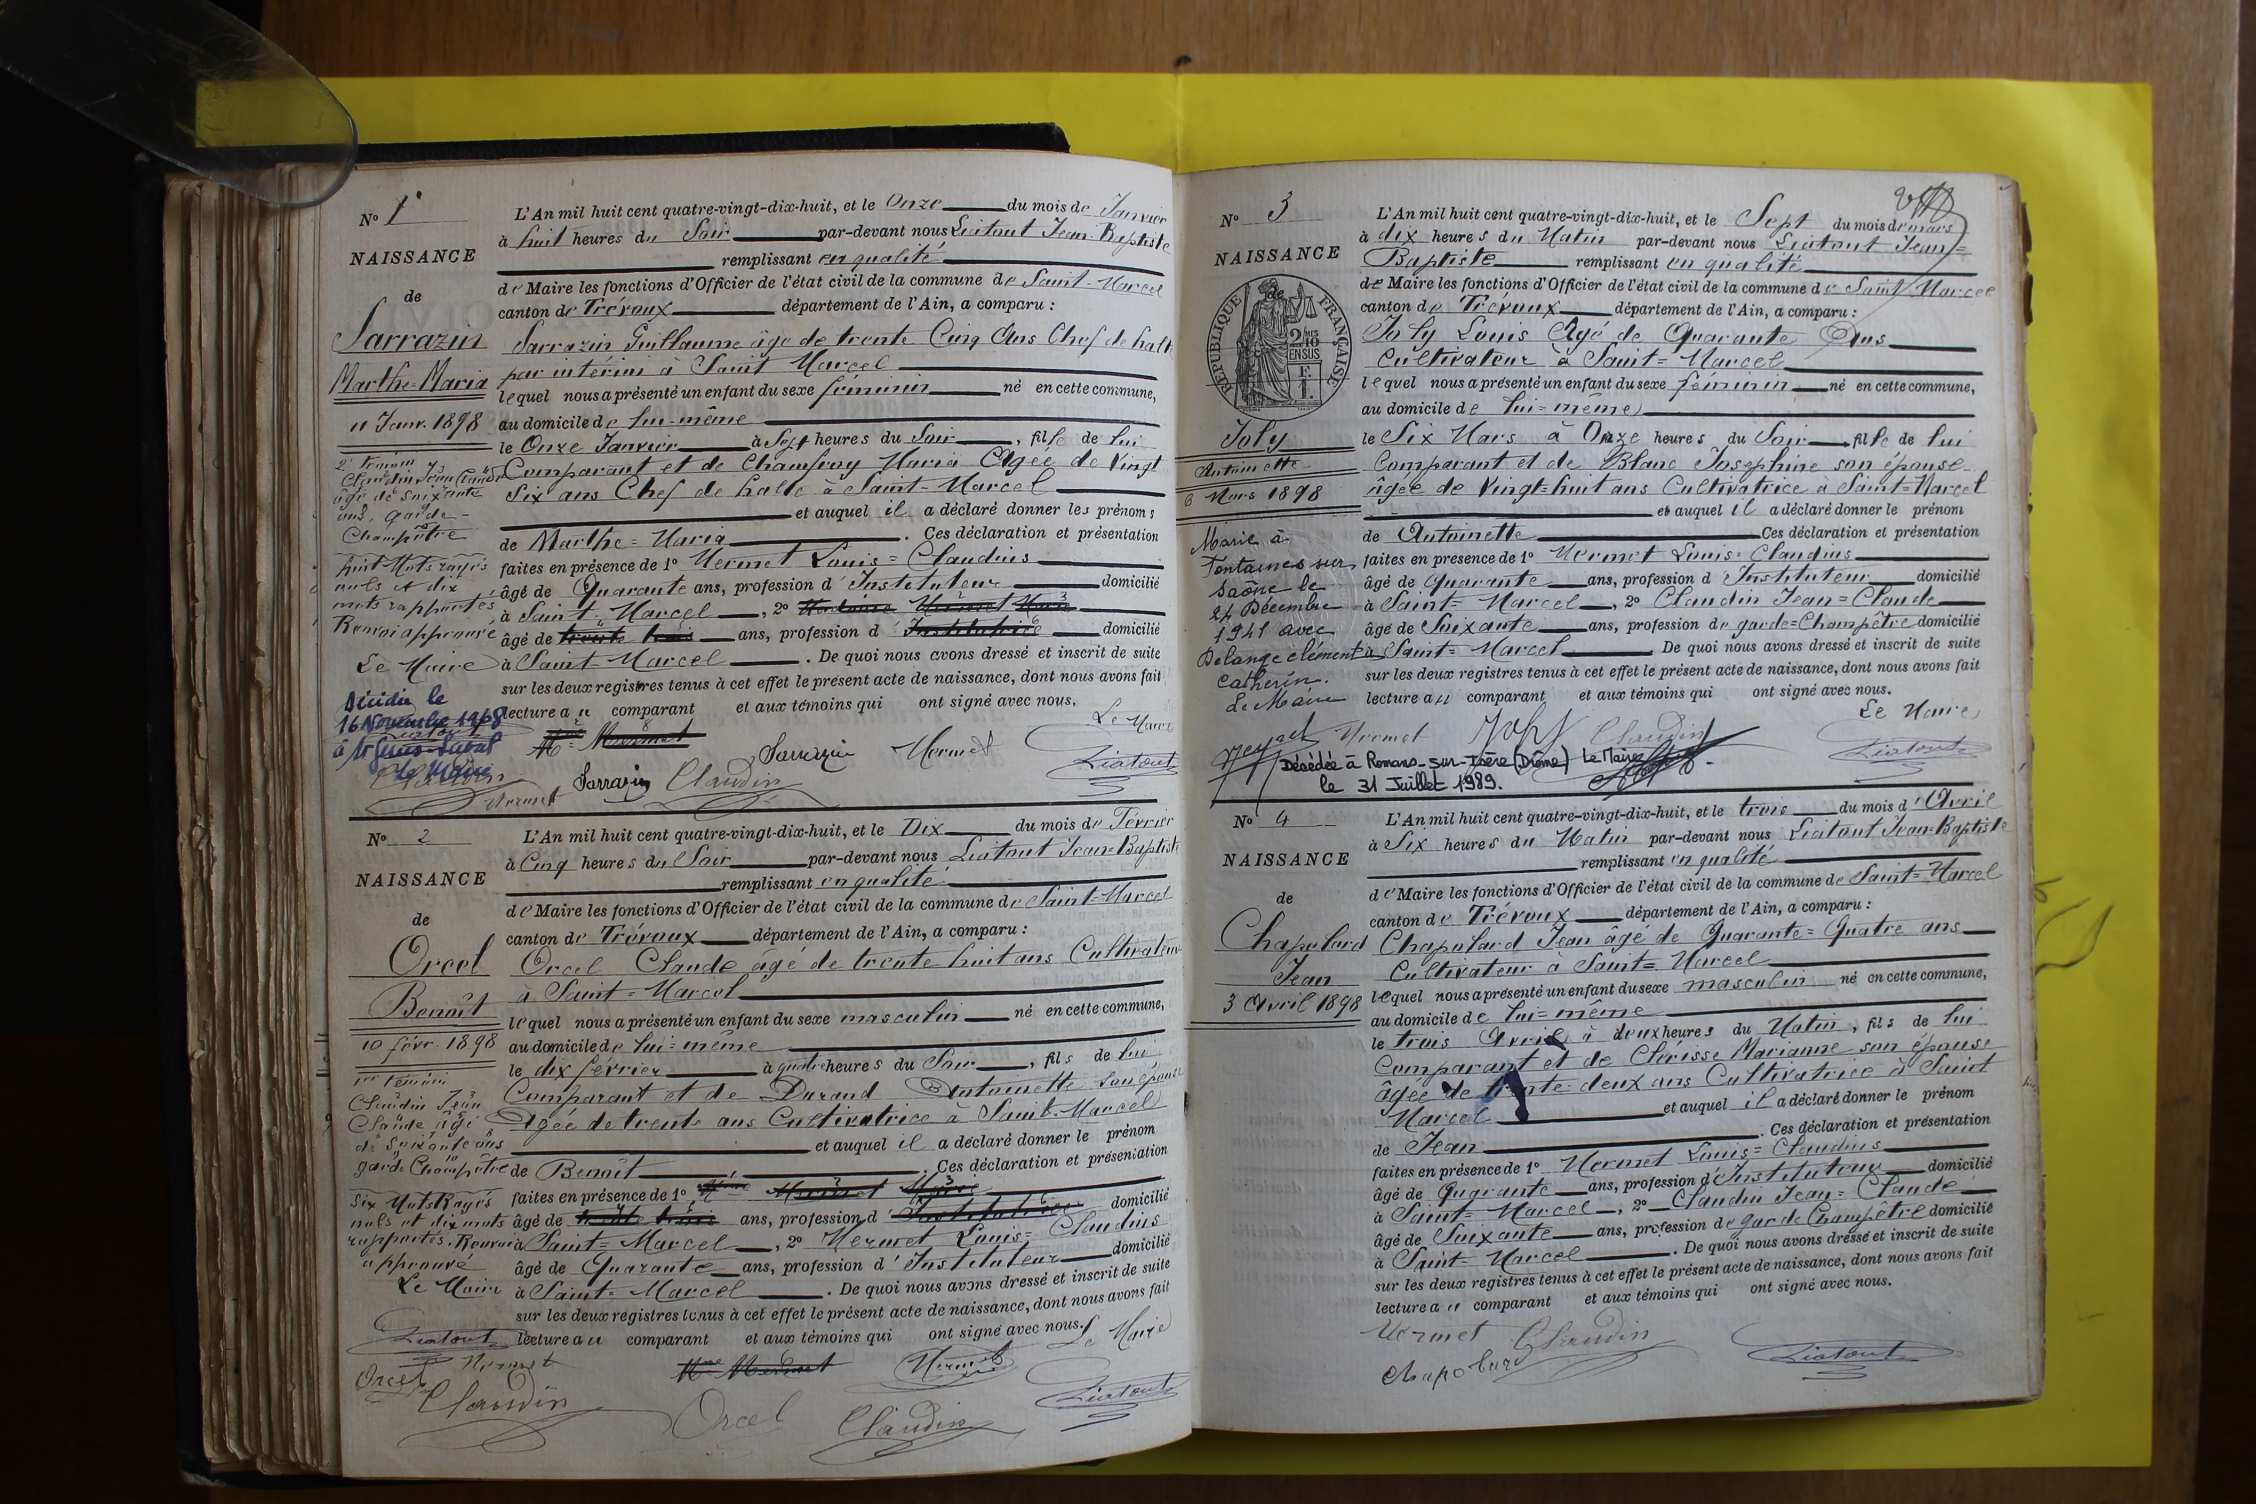 N° 1
NAISSANCE
de
Sarrazin
Marthe-Maria
11 Janv. 1898
2e témoin
Claudin Jean Claude
âgé de soixante
ans, garde-
Champêtre
huit Mots rayés
nuls et dix
mots rapportés
Renvoi approuvé
Le Maire
Décidée le
16 Novembre 1968
à St Genis-Laval
Le Maire
Liatout
Claudin
Vermet
L'An mil huit cent quatre-vingt-dix-huit, et le Onze du mois de Janvier
à huit heures du Soir par-devant nous Liatout Jean-Baptiste
remplissant en qualité
de Maire les fonctions d'Officier de l'état civil de la commune de Saint-Marcel
canton de Trévoux département de l'Ain, a comparu :
Sarrazin Guillaume âgé de trente Cinq Ans Chef de halte
par intérim à Saint Marcel
lequel nous a présenté un enfant du sexe féminin né en cette commune,
au domicile de lui-même
le Onze Janvier à Sept heures du Soir, fille de lui
Comparant et de Chamfroy Maria Agée de Vingt
Six ans Chef de halte à Saint-Marcel
et auquel il a déclaré donner les prénoms
de Marthe=Maria. Ces déclaration et présentation
faites en présence de 1° Vermet Louis=Claudius
âgé de Quarante ans, profession d'Instituteur domicilié
à Saint Marcel, 2°
âgé de trente trois ans, profession d'Institutrice domicilié
à Saint-Marcel. De quoi nous avons dressé et inscrit de suite
sur les deux registres tenus à cet effet le présent acte de naissance, dont nous avons fait
lecture au comparant et aux témoins qui ont signé avec nous.
Le Maire
Sarrazin Vermet
Liatout
Sarrazin Claudin
N° 2
NAISSANCE
de
Orcel
Benoît
10 févr. 1898
1er témoin
Claudin Jean
Claude âgé
de Soixante ans
garde Champêtre
Six Mots Rayés
nuls et dix mots
rapportés. Renvoi
approuvé
Le Maire
Liatout
Orcel Vermet
Claudin
L'An mil huit cent quatre-vingt-dix-huit, et le Dix du mois de Février
à Cinq heures du Soir par-devant nous Liatout Jean=Baptiste
remplissant en qualité
de Maire les fonctions d'Officier de l'état civil de la commune de Saint=Marcel
canton de Trévoux département de l'Ain, a comparu :
Orcel Claude âgé de trente huit ans Cultivateur
à Saint=Marcel
lequel nous a présenté un enfant du sexe masculin né en cette commune,
au domicile de lui=même
le dix février à quatre heures du Soir, fils de lui
Comparant et de Durand Antoinette son épouse
Agée de trente ans Cultivatrice à Saint-Marcel
et auquel il a déclaré donner le prénom
de Benoît. Ces déclaration et présentation
faites en présence de 1°
âgé de trente trois ans, profession d'Institutrice domicilié
à Saint=Marcel, 2° Vermet Louis=Claudius
âgé de Quarante ans, profession d'Instituteur domicilié
à Saint=Marcel. De quoi nous avons dressé et inscrit de suite
sur les deux registres tenus à cet effet le présent acte de naissance, dont nous avons fait
lecture au comparant et aux témoins qui ont signé avec nous. Le Maire
Vermet
Liatout
Orcel Claudin
N° 3
NAISSANCE
de
RÉPUBLIQUE FRANÇAISE
2/10 EN SUS
F. 1.
Joly
Antoinette
6 Mars 1898
Marié à
Fontaines sur
Saône le
24 Décembre
1941 avec
Delange clément
Catherin.
Le Maire
L'An mil huit cent quatre-vingt-dix-huit, et le Sept du mois de mars
à dix heures du Matin par-devant nous Liatout Jean=
Baptiste remplissant en qualité
de Maire les fonctions d'Officier de l'état civil de la commune de Saint Marcel
canton de Trévoux département de l'Ain, a comparu :
Joly Louis Agé de Quarante Ans
Cultivateur à Saint=Marcel
lequel nous a présenté un enfant du sexe féminin né en cette commune,
au domicile de lui=même
le Six Mars à Onze heures du Soir fille de lui
Comparant et de Blanc Josephine son épouse
âgée de Vingt=huit ans Cultivatrice à Saint=Marcel
et auquel il a déclaré donner le prénom
de Antoinette Ces déclaration et présentation
faites en présence de 1° Vermet Louis=Claudius
âgé de quarante ans, profession d'Instituteur domicilié
à Saint=Marcel, 2° Claudin Jean=Claude
âgé de Soixante ans, profession de garde=Champêtre domicilié
à Saint=Marcel De quoi nous avons dressé et inscrit de suite
sur les deux registres tenus à cet effet le présent acte de naissance, dont nous avons fait
lecture au comparant et aux témoins qui ont signé avec nous.
Le Maire
Vermet Joly Claudin
Liatout
Décédée à Romans-sur-Isère (Drôme) Le Maire
le 31 Juillet 1989.
N° 4
NAISSANCE
de
Chapolard
Jean
3 Avril 1898
L'An mil huit cent quatre-vingt-dix-huit, et le trois du mois d'Avril
à Six heures du Matin par-devant nous Liatout Jean=Baptiste
remplissant en qualité
de Maire les fonctions d'Officier de l'état civil de la commune de Saint=Marcel
canton de Trévoux département de l'Ain, a comparu :
Chapolard Jean âgé de Quarante=Quatre ans
Cultivateur à Saint=Marcel
lequel nous a présenté un enfant du sexe masculin né en cette commune,
au domicile de lui=même
le trois Avril à deux heures du Matin, fils de lui
Comparant et de Clérisse Marianne son épouse
âgée de trente-deux ans Cultivatrice à Saint
Marcel et auquel il a déclaré donner le prénom
de Jean. Ces déclaration et présentation
faites en présence de 1° Vermet Louis=Claudius
âgé de Quarante ans, profession d'Instituteur domicilié
à Saint=Marcel, 2° Claudin Jean=Claude
âgé de Soixante ans, profession de garde Champêtre domicilié
à Saint=Marcel. De quoi nous avons dressé et inscrit de suite
sur les deux registres tenus à cet effet le présent acte de naissance, dont nous avons fait
lecture au comparant et aux témoins qui ont signé avec nous.
Vermet Claudin
Chapolard
Liatout